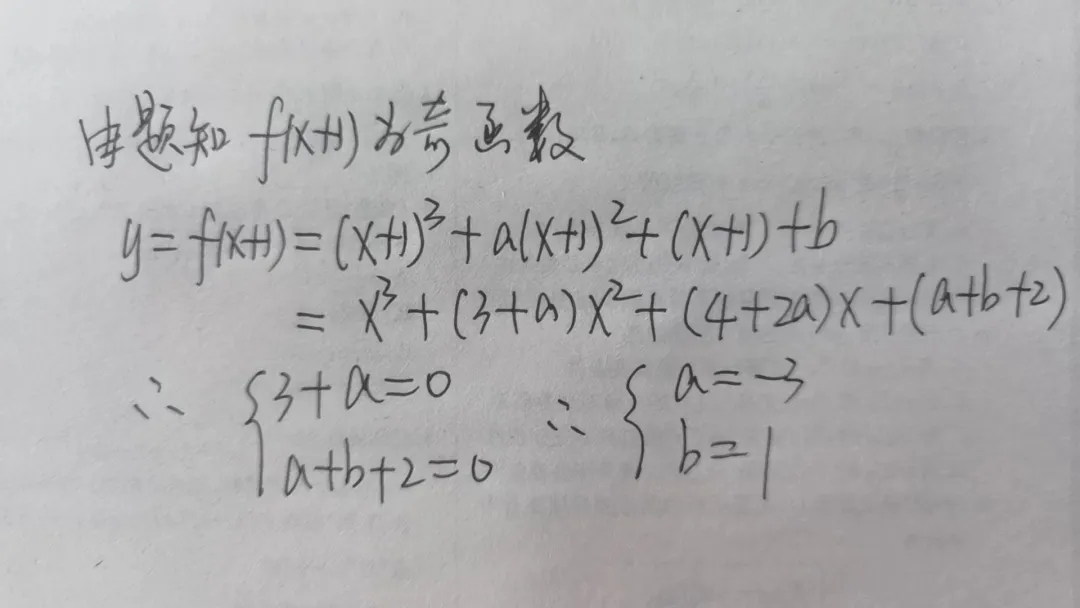 由题知 f(x+1) 为奇函数
y = f(x+1) = (x+1)³ + a(x+1)² + (x+1) + b
= x³ + (3+a)x² + (4+2a)x + (a+b+2)
∴ { 3+a=0 ∴ { a=-3
a+b+2=0 b=1